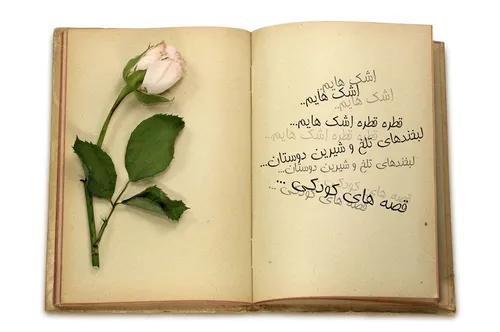 اشک هایم
اشک هایم..
اشک هایم..
قطره قطره اشک هایم...
قطره قطره اشک هایم...
لبخندهای تلخ و شیرین دوستان...
لبخندهای تلخ و شیرین دوستان...
قصه های کودکی ...
قصه های کودکی...